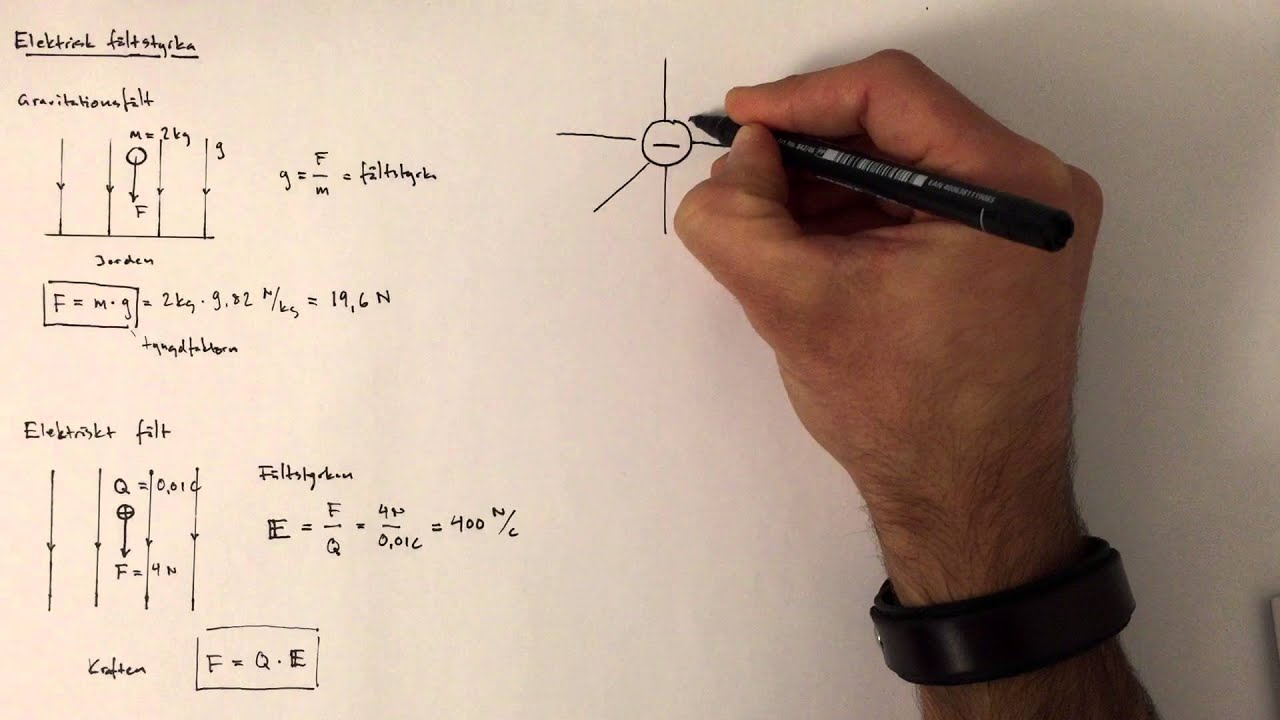 Elektrisk fältstyrka
Gravitationsfält
m = 2 kg
g
F
g = F/m = fältstyrka
Jorden
F = m · g = 2 kg · 9,82 N/kg = 19,6 N
tyngdfaktorn
Elektriskt fält
Q = 0,01 C
F = 4 N
Fältstyrkan
E = F/Q = 4N/0,01C = 400 N/C
Kraften
F = Q · E
−
EAN 4006381119085